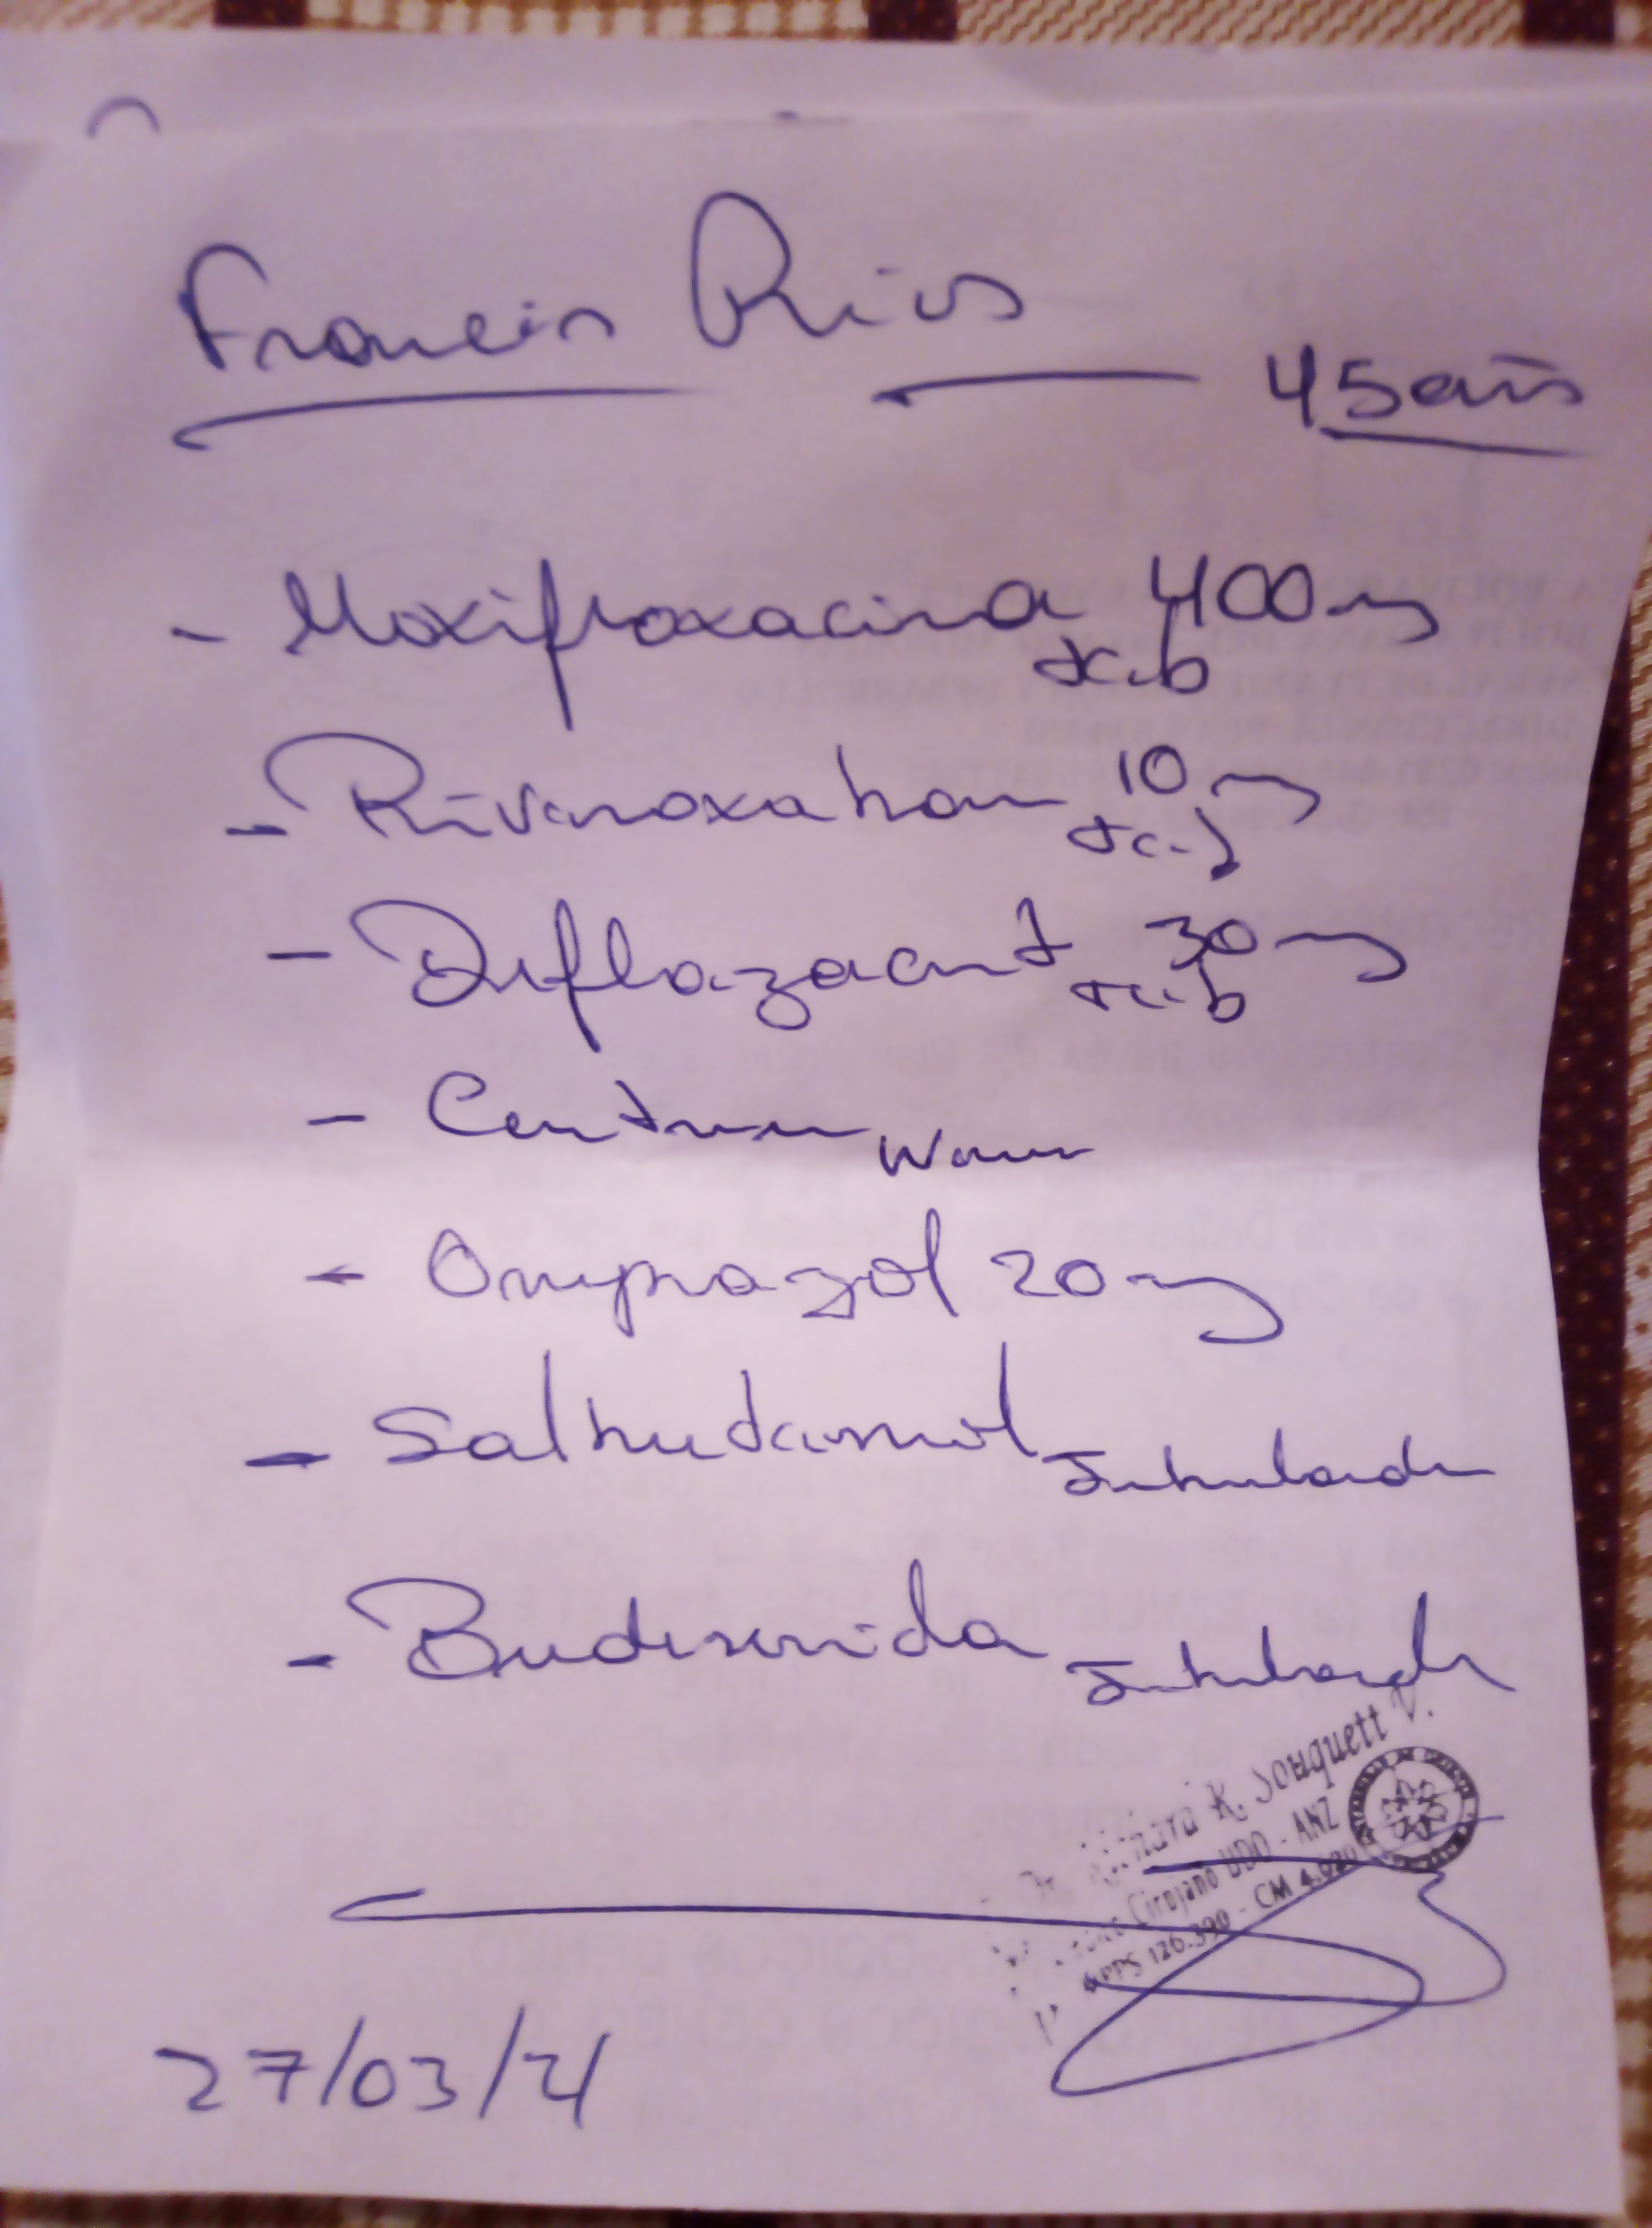 Francis Rios
45 años
- Moxifloxacina 400mg
tab
- Rivaroxaban 10mg
tab
- Deflazacort 30mg
tab
- Centrum
- Omeprazol 20mg
- Salbutamol Inhalador
- Budesonida Inhalador
K. Souquett V.
Cirujano UDO - ANZ
MPPS 126.390 - CM
27/03/21